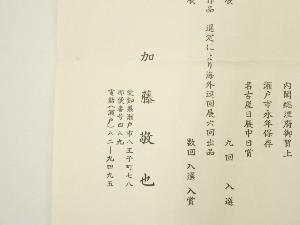 内閣総理府御買上
瀬戸市永年保存
名古屋日展中日賞
展 九回入選
作品 選定により海外巡回展六回出品
展 数回入選入賞
加藤敬也
愛知県瀬戸市八王子町七八
郵便番号四八九
電話(瀬戸)八二-九四九五